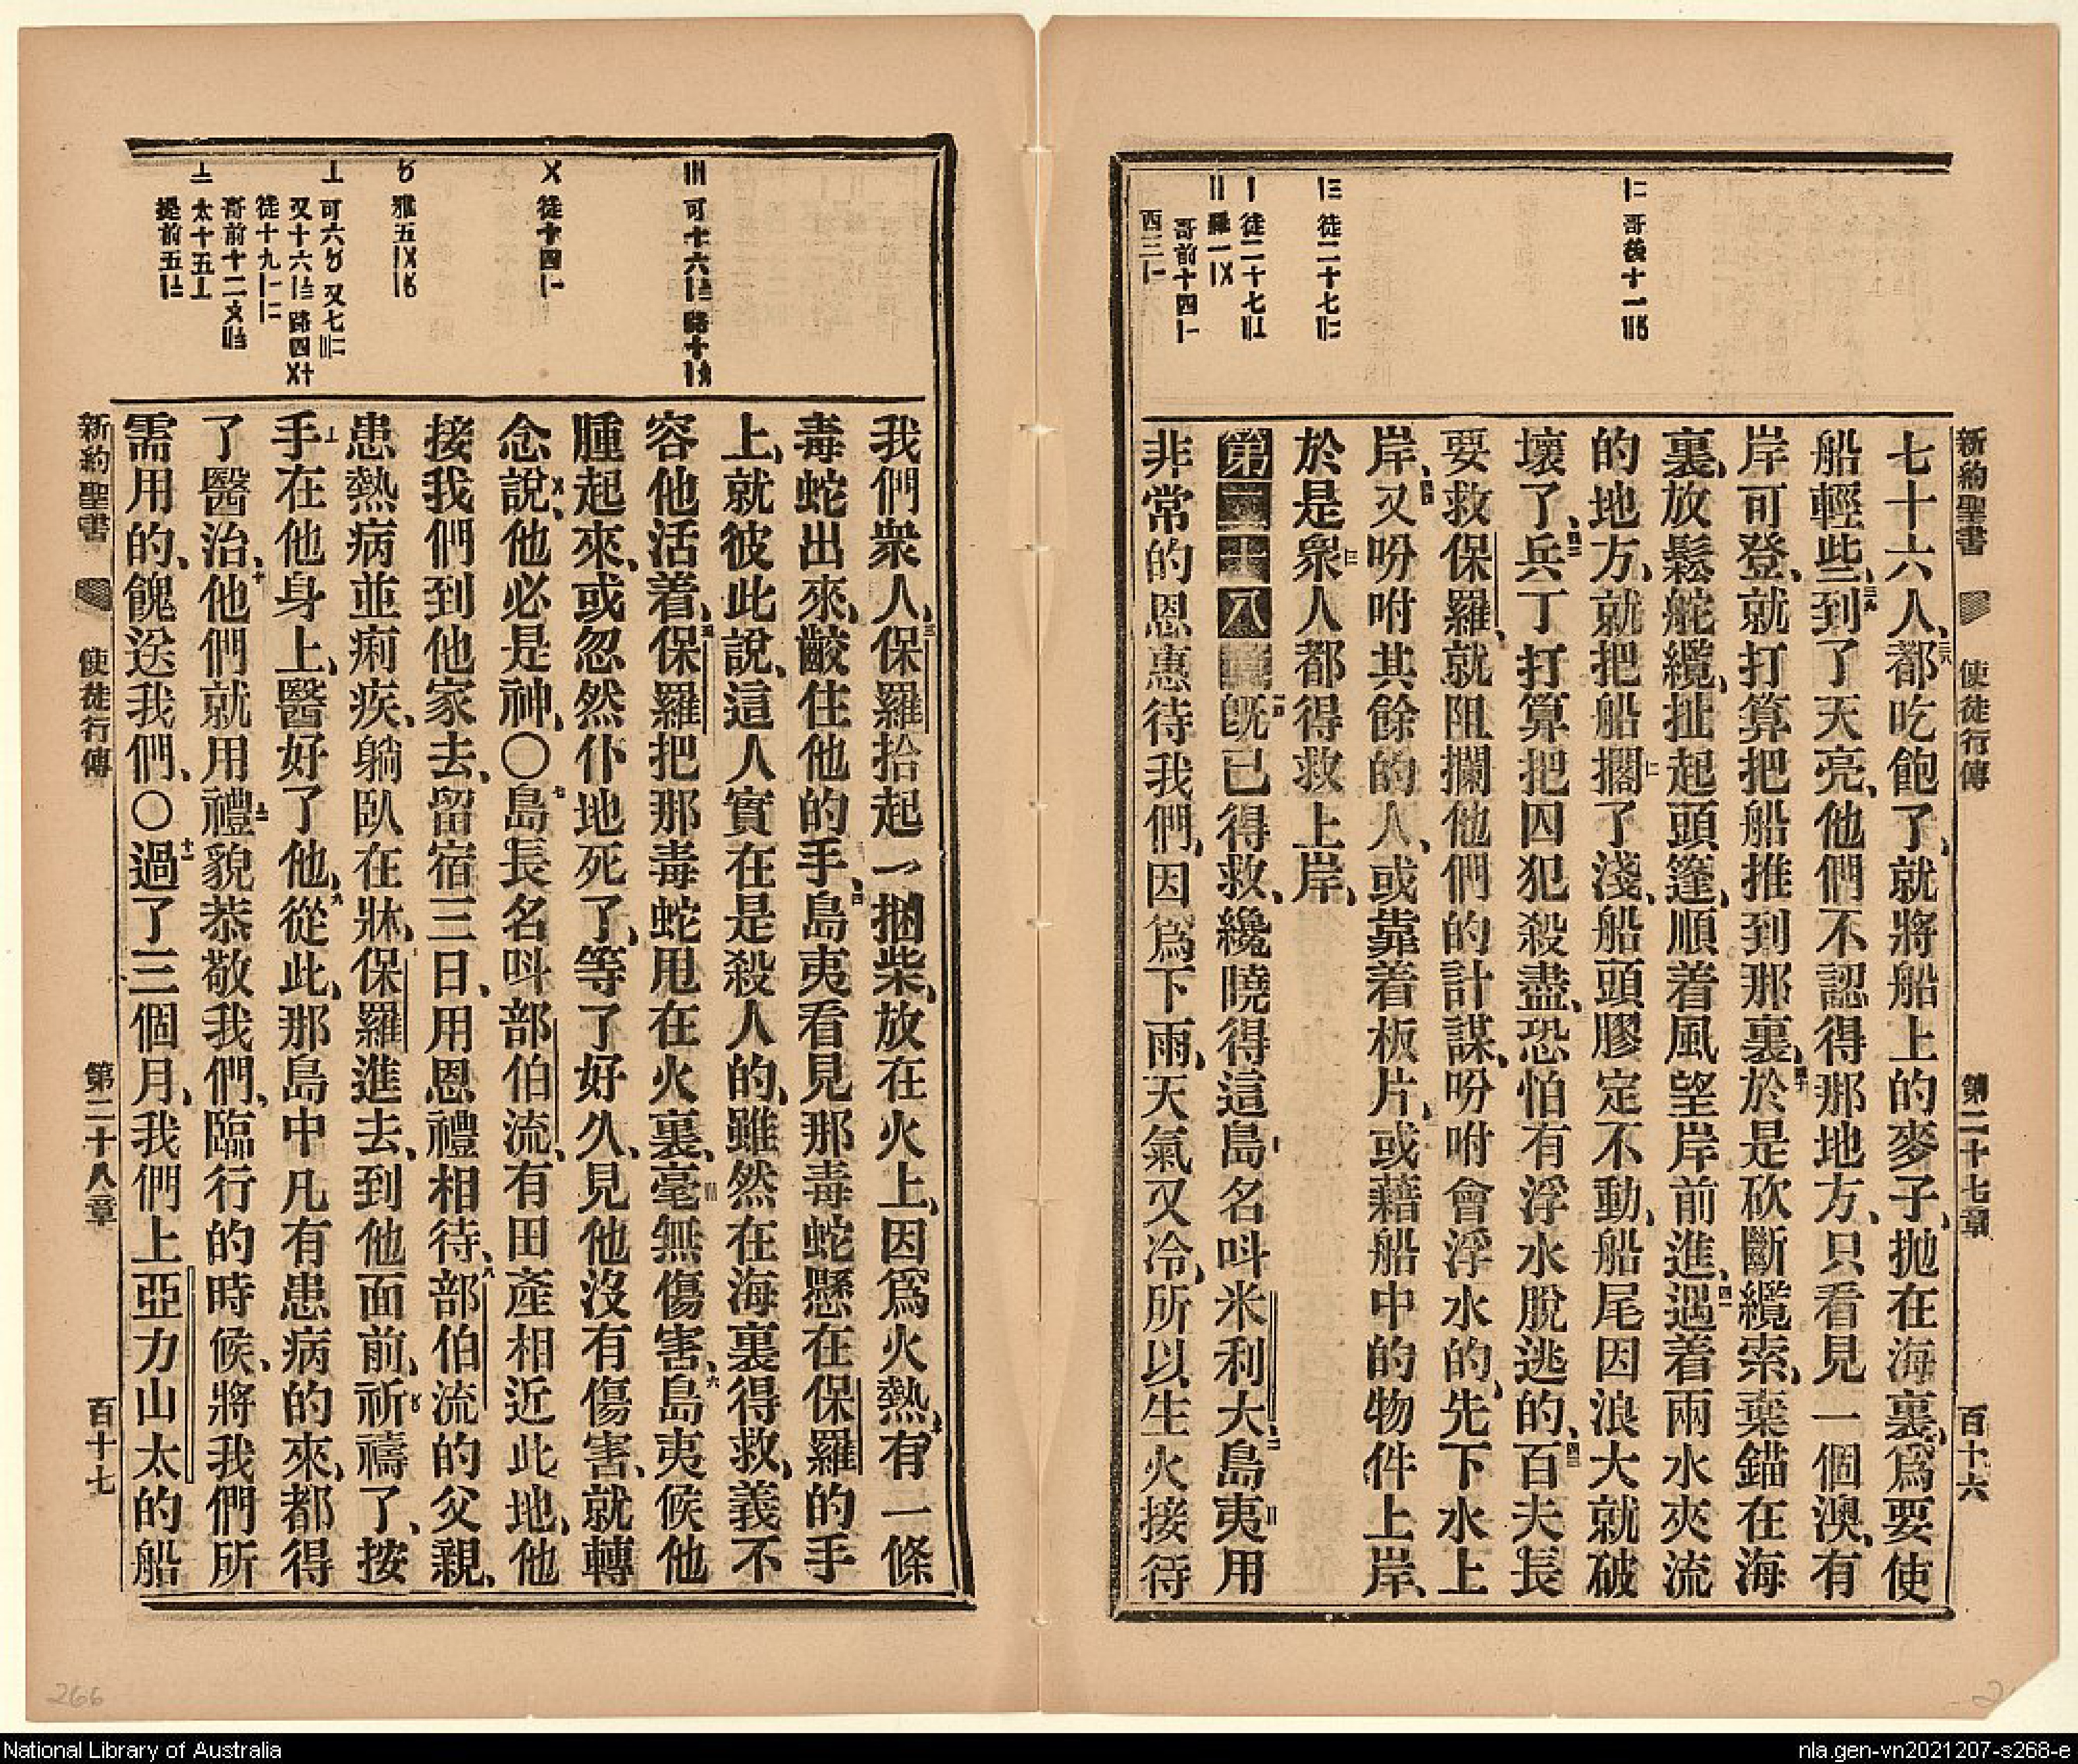 新約聖書 使徒行傳 第二十七章 百十六
七十六人、三八都吃飽了、就將船上的麥子、抛在海裏、爲要使
船輕些、三九到了天亮、他們不認得那地方、只看見一個澳、有
岸可登、就打算把船推到那裏、四十於是砍斷纜索、棄錨在海
裏、放鬆舵纜、扯起頭篷、順着風望岸前進、四一遇着兩水夾流
的地方、就把船擱〢了淺、船頭膠定不動、船尾因浪大就破
壞了、四二兵丁打算把囚犯殺盡、恐怕有浮水脫逃的、四三百夫長
要救保羅、就阻攔他們的計謀、吩咐會浮水的、先下水上
岸、四四又吩咐其餘的人、或靠着板片、或藉船中的物件上岸、
於是衆人都得救上岸、
第二十八章一旣已得救、纔曉得這島名呌米利大、二島夷用
非常的恩惠待我們、因爲下雨、天氣又冷、所以生火接待
哥後十一
徒二十七
徒二十七
羅一
哥前十四
西三
我們衆人、三保羅拾起一捆柴、放在火上、因爲火熱、有一條
毒蛇出來、齩住他的手、四島夷看見那毒蛇懸在保羅的手
上、就彼此說、這人實在是殺人的、雖然在海裏得救、義不
容他活着、五保羅把那毒蛇甩在火裏、毫無傷害、六島夷候他
腫起來、或忽然仆地死了、等了好久、見他沒有傷害、就轉
念說、他必是神、〇七島長名呌部伯流、有田產相近此地、他
接我們到他家去、留宿三日、用恩禮相待、八部伯流的父親、
患熱病並痢疾、躺臥在牀、保羅進去、到他面前、祈禱了、按
手在他身上、醫好了他、九從此、那島中凡有患病的來、都得
了醫治、十他們就用禮貌恭敬我們、臨行的時候、將我們所
需用的、餽送我們、〇十一過了三個月、我們上亞力山太的船
新約聖書 使徒行傳 第二十八章 百十七
可十六 路十
徒十四
雅五
可六 又七
又十六 路四
徒十九
哥前十二
太十五
提前五
266
National Library of Australia
nla.gen-vn2021207-s268-e